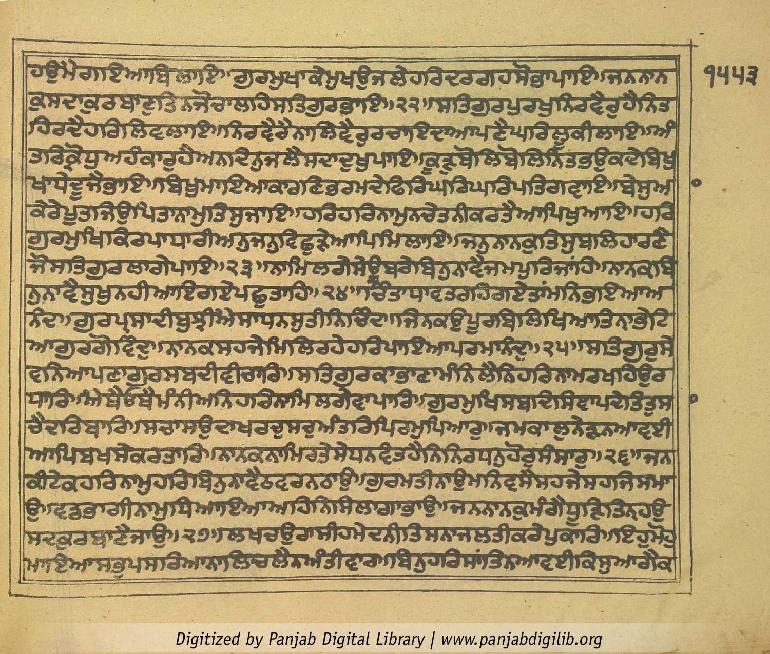 ਹਉਮੈਗਾਇਆਬਿਲਲਾਇ॥ਗੁਰਮੁਖਾਕੇਮੁਖਉਜਲੇਹਰਿਦਰਗਹਸੋਭਾਪਾਇ॥ਜਨਨਾਨ
੧੪੪੩
ਕੁਸਦਾਕੁਰਬਾਣੁਤਿਨਜੋਚਾਲਹਿਸਤਿਗੁਰਭਾਇ॥੨੨॥ਸਤਿਗੁਰਪੁਰਖੁਨਿਰਵੈਰੁਹੈਨਿਤ
ਹਿਰਦੈਹਰਿਲਿਵਲਾਇ॥ਨਿਰਵੈਰੈਨਾਲਿਵੈਰੁਰਚਾਇਦਾਆਪਣੈਘਰਿਲੂਕੀਲਾਇ॥ਅੰ
ਤਰਿਕ੍ਰੋਧੁਅਹੰਕਾਰੁਹੈਅਨਦਿਨੁਜਲੈਸਦਾਦੁਖੁਪਾਇ॥ਕੂੜੁਬੋਲਿਬੋਲਿਨਿਤਭਉਕਦੇਬਿਖੁ
ਖਾਧੇਦੂਜੈਭਾਇ॥ਬਿਖੁਮਾਇਆਕਾਰਣਿਭਰਮਦੇਫਿਰਿਘਰਿਘਰਿਪਤਿਗਵਾਇ॥ਬੇਸੁਆ
ਕੇਰੇਪੂਤਜਿਉਪਿਤਾਨਾਮੁਤਿਸੁਜਾਇ॥ਹਰਿਹਰਿਨਾਮੁਨਚੇਤਨੀਕਰਤੈਆਪਿਖੁਆਇ॥ਹਰਿ
ਗੁਰਮੁਖਿਕਿਰਪਾਧਾਰੀਅਨੁਜਨਵਿਛੁੜੇਆਪਿਮਿਲਾਇ॥ਜਨੁਨਾਨਕੁਤਿਸੁਬਲਿਹਾਰਣੈ
ਜੋਸਤਿਗੁਰਲਾਗੇਪਾਇ॥੨੩॥ਨਾਮਿਲਗੇਸੇਊਬਰੇਬਿਨੁਨਾਵੈਜਮਪੁਰਿਜਾਂਹਿ॥ਨਾਨਕਬਿ
ਨੁਨਾਵੈਸੁਖੁਨਹੀਆਇਗਏਪਛੁਤਾਹਿ॥੨੪॥ਚਿੰਤਾਧਾਵਤਰਹਿਗਏਤਾਂਮਨਿਭਇਆਅ
ਨੰਦਾ॥ਗੁਰਪ੍ਰਸਾਦੀਬੁਝੀਐਸਾਧਨਸੁਤੀਨਿਚਿੰਦ॥ਜਿਨਕਉਪੂਰਬਿਲਿਖਿਆਤਿਨਾਭੇਟਿ
ਆਗੁਰਗੋਵਿੰਦੁ॥ਨਾਨਕਸਹਜੇਮਿਲਿਰਹੇਹਰਿਪਾਇਆਪਰਮਾਨੰਦੁ॥੨੫॥ਸਤਿਗੁਰੁਸੇ
ਵਨਿਆਪਣਾਗੁਰਸਬਦੀਵੀਚਾਰਿ॥ਸਤਿਗੁਰਕਾਭਾਣਾਮੰਨਿਲੈਨਿਹਰਿਨਾਮੁਰਖਹਿਉਰ
ਧਾਰਿ॥ਐਥੈਓਥੈਮੰਨੀਅਨਿਹਰਿਨਾਮਿਲਗੇਵਾਪਾਰਿ॥ਗੁਰਮੁਖਿਸਬਦਿਸਿਞਾਪਦੇਤਿਤੁਸਾ
ਚੈਦਰਿਬਾਰਿ॥ਸਚਾਸਉਦਾਖਰਚੁਸਚੁਅੰਤਰਿਪਿਰਮੁਪਿਆਰੁ॥ਜਮਕਾਲੁਨੇੜਿਨਆਵਈ
ਆਪਿਬਖਸੇਕਰਤਾਰਿ॥ਨਾਨਕਨਾਮਿਰਤੇਸੇਧਨਵੰਤਹੈਨਿਨਿਰਧਨੁਹੋਰੁਸੰਸਾਰੁ॥੨੬॥ਜਨ
ਕੀਟੇਕਹਰਿਨਾਮੁਹਰਿਬਿਨੁਨਾਵੈਠਵਰਨਠਾਉ॥ਗੁਰਮਤੀਨਾਉਮਨਿਵਸੈਸਹਜੇਸਹਜਿਸਮਾ
ਉ॥ਵਡਭਾਗੀਨਾਮੁਧਿਆਇਆਅਹਿਨਿਸਿਲਾਗਾਭਾਉ॥ਜਨਨਾਨਕੁਮੰਗੈਧੂੜਿਤਿਨਹਉ
ਸਦਕੁਰਬਾਣੈਜਾਉ॥੨੭॥ਲਖਚਉਰਾਸੀਹਮੇਦਨੀਤਿਸਨਾਜਲਤੀਕਰੇਪੁਕਾਰ॥ਇਹੁਮੋਹੁ
ਮਾਇਆਸਭੁਪਸਰਿਆਨਾਲਿਚਲੈਨਅੰਤੀਵਾਰ॥ਬਿਨੁਹਰਿਸਾਂਤਿਨਆਵਈਕਿਸੁਆਗੈਕ
Digitized by Panjab Digital Library | www.panjabdigilib.org